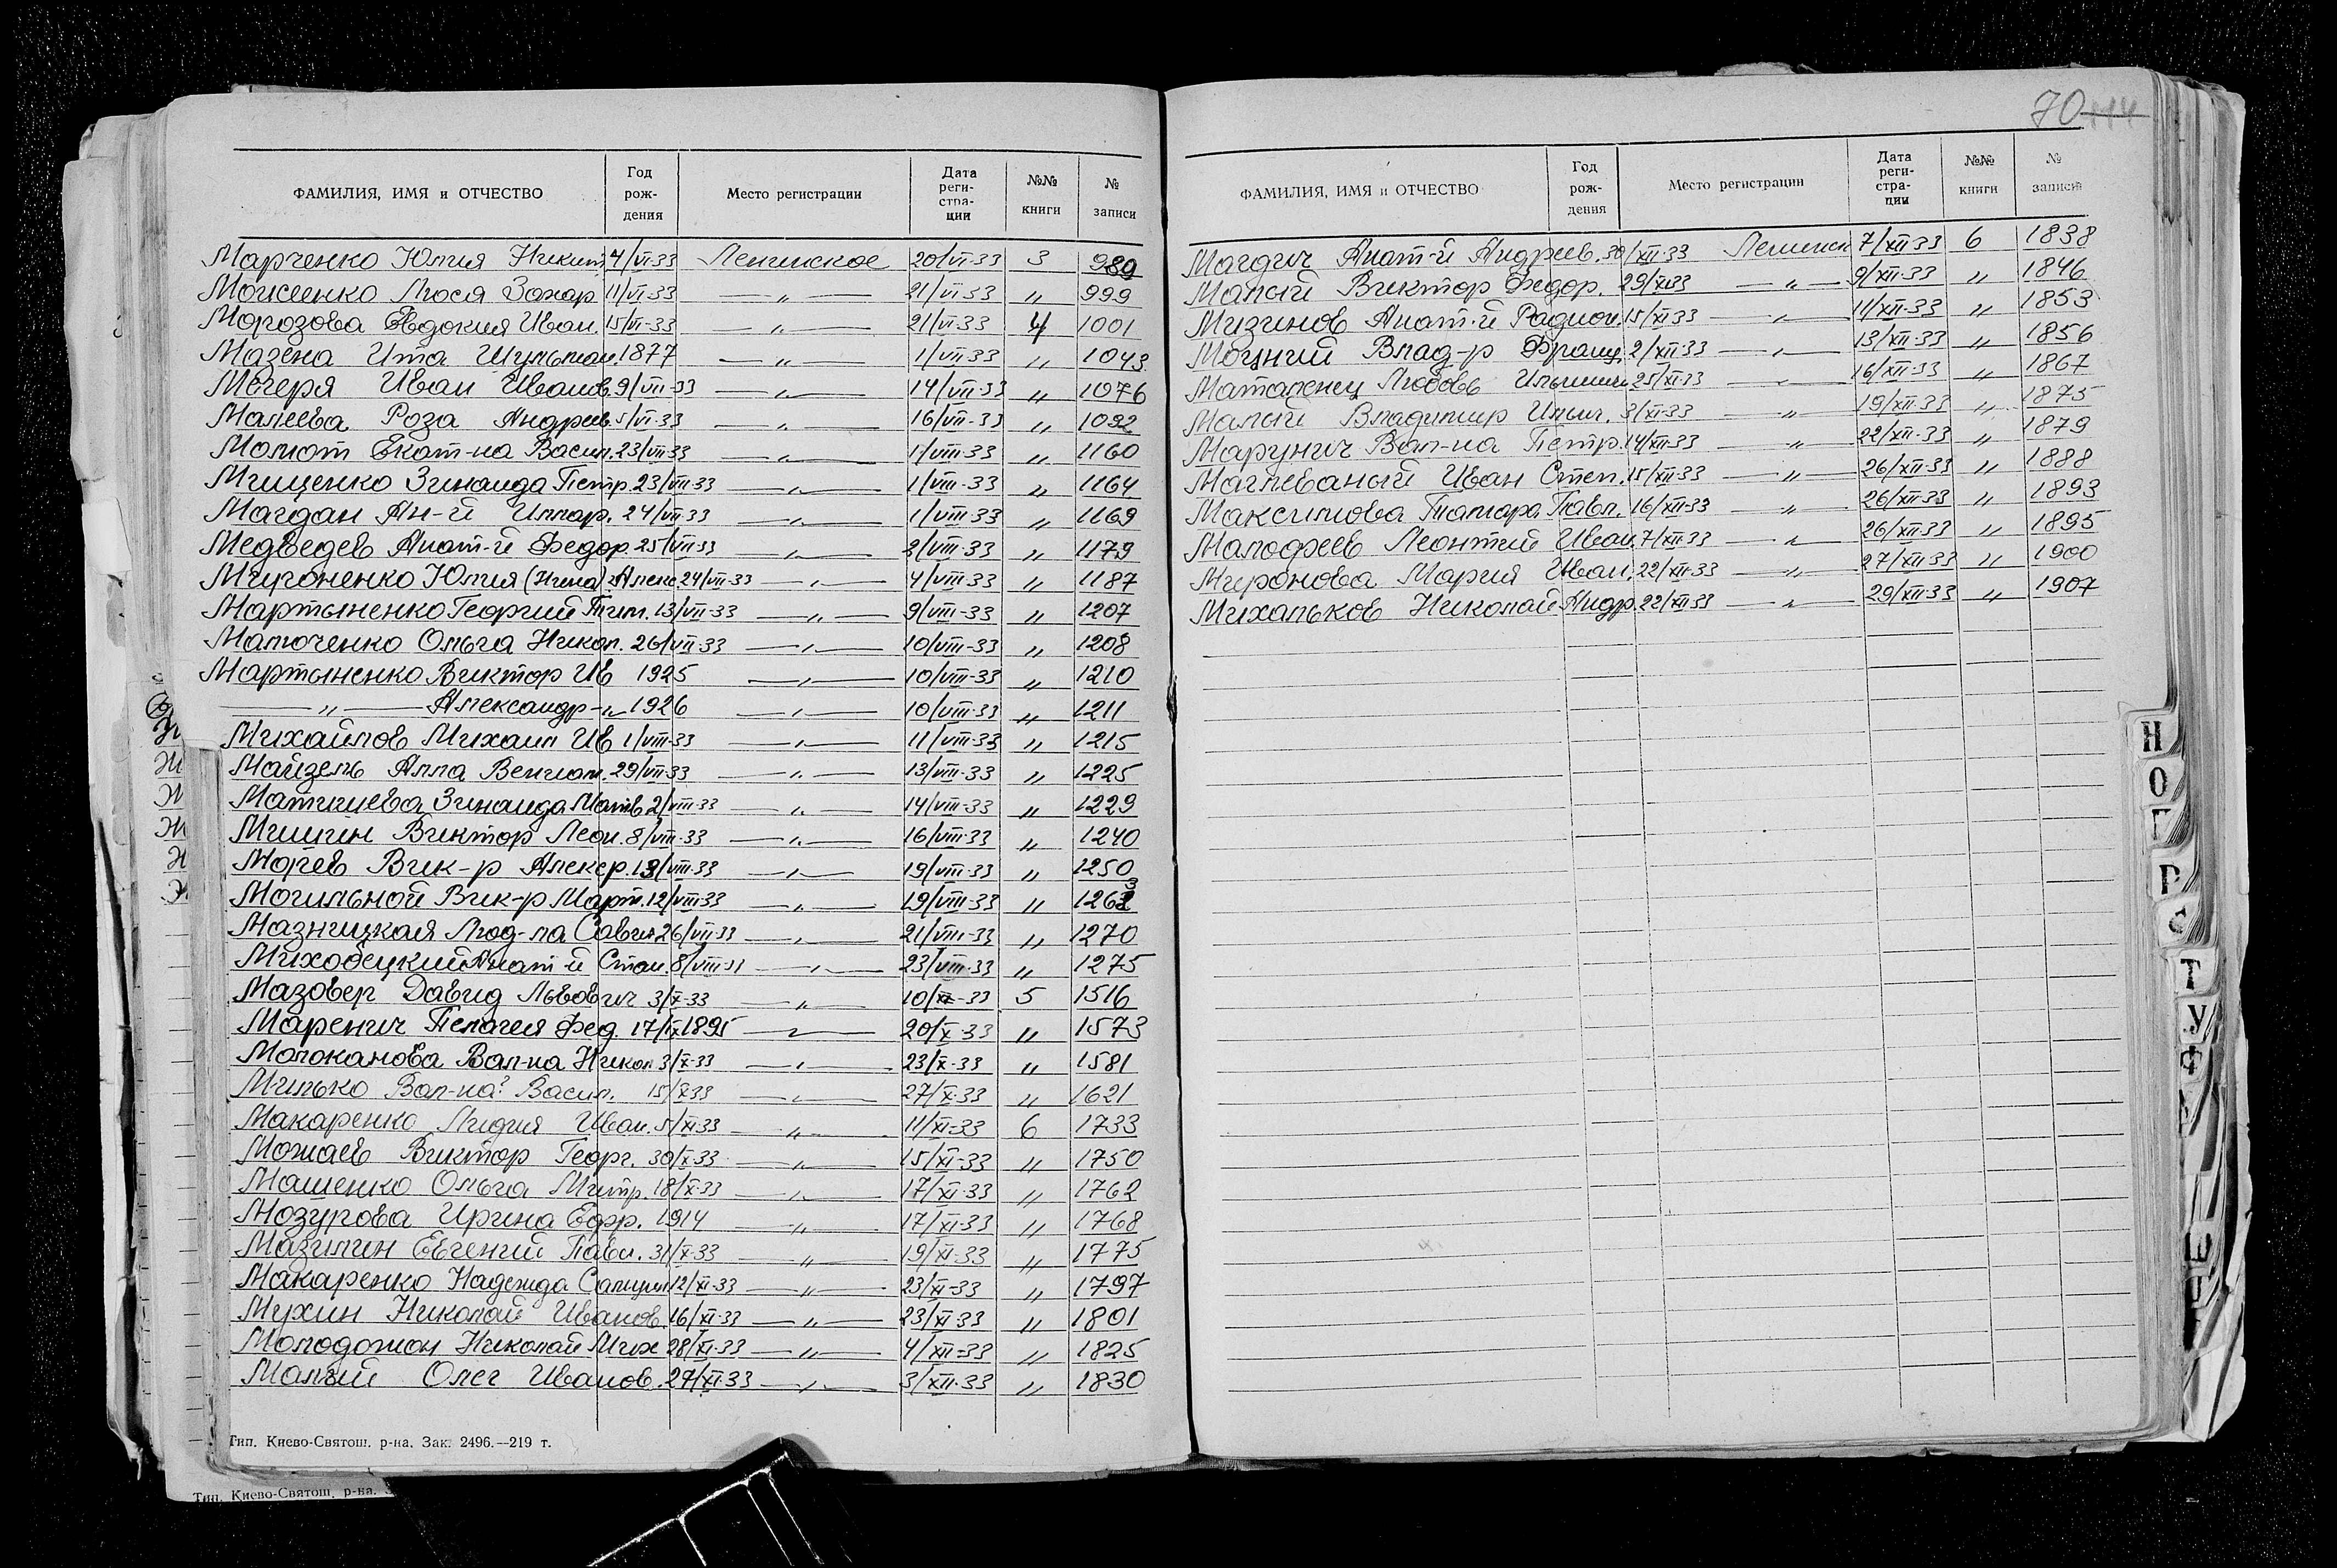 70 114
ФАМИЛИЯ, ИМЯ и ОТЧЕСТВО Год рож- дения Место регистрации Дата реги- стра- ции №№ книги № записи
Марченко Юлия Никит 4/VI-33 Ленинское 20/VI-33 3 989
Моисеенко Люся Захар 11/VI-33 —„— 21/VI-33 „ 999
Морозова Евдокия Иван. 15/VI-33 —„— 21/VI-33 4 1001
Мазена Ита Шульман. 1877 —„— 1/VII-33 „ 1043
Мегеря Иван Иванов. 9/VII-33 —„— 14/VII-33 „ 1076
Малеева Роза Андреев. 5/VI-33 —„— 16/VII-33 „ 1092
Малют Екат-на Васил. 23/VII-33 —„— 1/VIII-33 „ 1160
Мищенко Зинаида Петр. 23/VII-33 —„— 1/VIII-33 „ 1164
Магдан Ан-й Иллар. 24/VII-33 —„— 1/VIII-33 „ 1169
Медведев Анат-й Федор. 25/VII-33 —„— 2/VIII-33 „ 1179
Мироненко Юлия (Нина) Алекс 24/VII-33 —„— 4/VIII-33 „ 1187
Мартыненко Георгий Тим. 13/VII-33 —„— 9/VIII-33 „ 1207
Малюченко Ольга Никол. 26/VII-33 —„— 10/VIII-33 „ 1208
Мартыненко Виктор Ив 1925 —„— 10/VIII-33 „ 1210
—„— Александр -„- 1926 —„— 10/VIII-33 „ 1211
Михайлов Михаил Ив 1/VIII-33 —„— 11/VIII-33 „ 1215
Майзель Алла Вениам. 29/VII-33 —„— 13/VIII-33 „ 1225
Матишева Зинаида Матв 2/VIII-33 —„— 14/VIII-33 „ 1229
Мишин Виктор Леон. 8/VIII-33 —„— 16/VIII-33 „ 1240
Моев Вик-р Алекср. 13/VIII-33 —„— 19/VIII-33 „ 1250
Могильной Вик-р Март. 12/VIII-33 —„— 19/VIII-33 „ 1263
Мазницкая Люд-ла Савич 26/VII-33 —„— 21/VIII-33 „ 1270
Миходецкий Анат-й Стан. 8/VIII-31 —„— 23/VIII-33 „ 1275
Мазовер Давид Львович 3/X-33 —„— 10/X-33 5 1516
Маренич Пелагея Фед. 17/IX 1895 —„— 20/X-33 „ 1573
Молоканова Вал-на Никол 3/X-33 —„— 23/X-33 „ 1581
Милько Вал-на? Васил. 15/X-33 —„— 27/X-33 „ 1621
Макаренко Лидия Иван. 5/XI-33 —„— 11/XI-33 6 1733
Можаев Виктор Георг. 30/X-33 —„— 15/XI-33 „ 1750
Машенко Ольга Митр. 18/X-33 —„— 17/XI-33 „ 1762
Мозурова Ирина Ефр. 1914 —„— 17/XI-33 „ 1768
Мазилин Евгений Павл. 31/X-33 —„— 19/XI-33 „ 1775
Макаренко Надежда 12/XI-33 —„— 23/XI-33 „ 1797
Мухин Николай Иванов. 16/XI-33 —„— 23/XI-33 „ 1801
Молодожон Николай Мих 28/XI-33 —„— 4/XII-33 „ 1825
Малый Олег Иванов. 27/XI-33 —„— 3/XII-33 „ 1830
Тип. Киево-Святош. р-на. Зак. 2496.—219 т.
Тип. Киево-Святош. р-на.
ФАМИЛИЯ, ИМЯ и ОТЧЕСТВО Год рож- дения Место регистрации Дата реги- стра- ции №№ книги № записи
Магдич Анат-й Андреев. 30/XII-33 Ленинск 7/XII-33 6 1838
Малый Виктор Федор. 29/XI-33 —„— 9/XII-33 „ 1846
Мизинов Анат-й Радион. 15/XI-33 —„— 11/XII-33 „ 1853
Моцний Влад-р Франц. 2/XII-33 —„— 13/XII-33 „ 1856
Маталенец Любовь 25/XI-33 —„— 16/XII-33 „ 1867
Малый Владимир Ильич. 3/XI-33 —„— 19/XII-33 „ 1875
Марунич Вал-на Петр. 14/XII-33 —„— 22/XII-33 „ 1879
Маглеваный Иван Степ. 15/XII-33 —„— 26/XII-33 „ 1888
Максимова Тамара Павл. 16/XII-33 —„— 26/XII-33 „ 1893
Малофеев Леонтий Иван. 7/XII-33 —„— 26/XII-33 „ 1895
Миронова Мария Иван. 22/XII-33 —„— 27/XII-33 „ 1900
Михальков Николай Андр. 22/XII-33 —„— 29/XII-33 „ 1907
Н
О
П
Р
С
Т
У
Ф
Ш